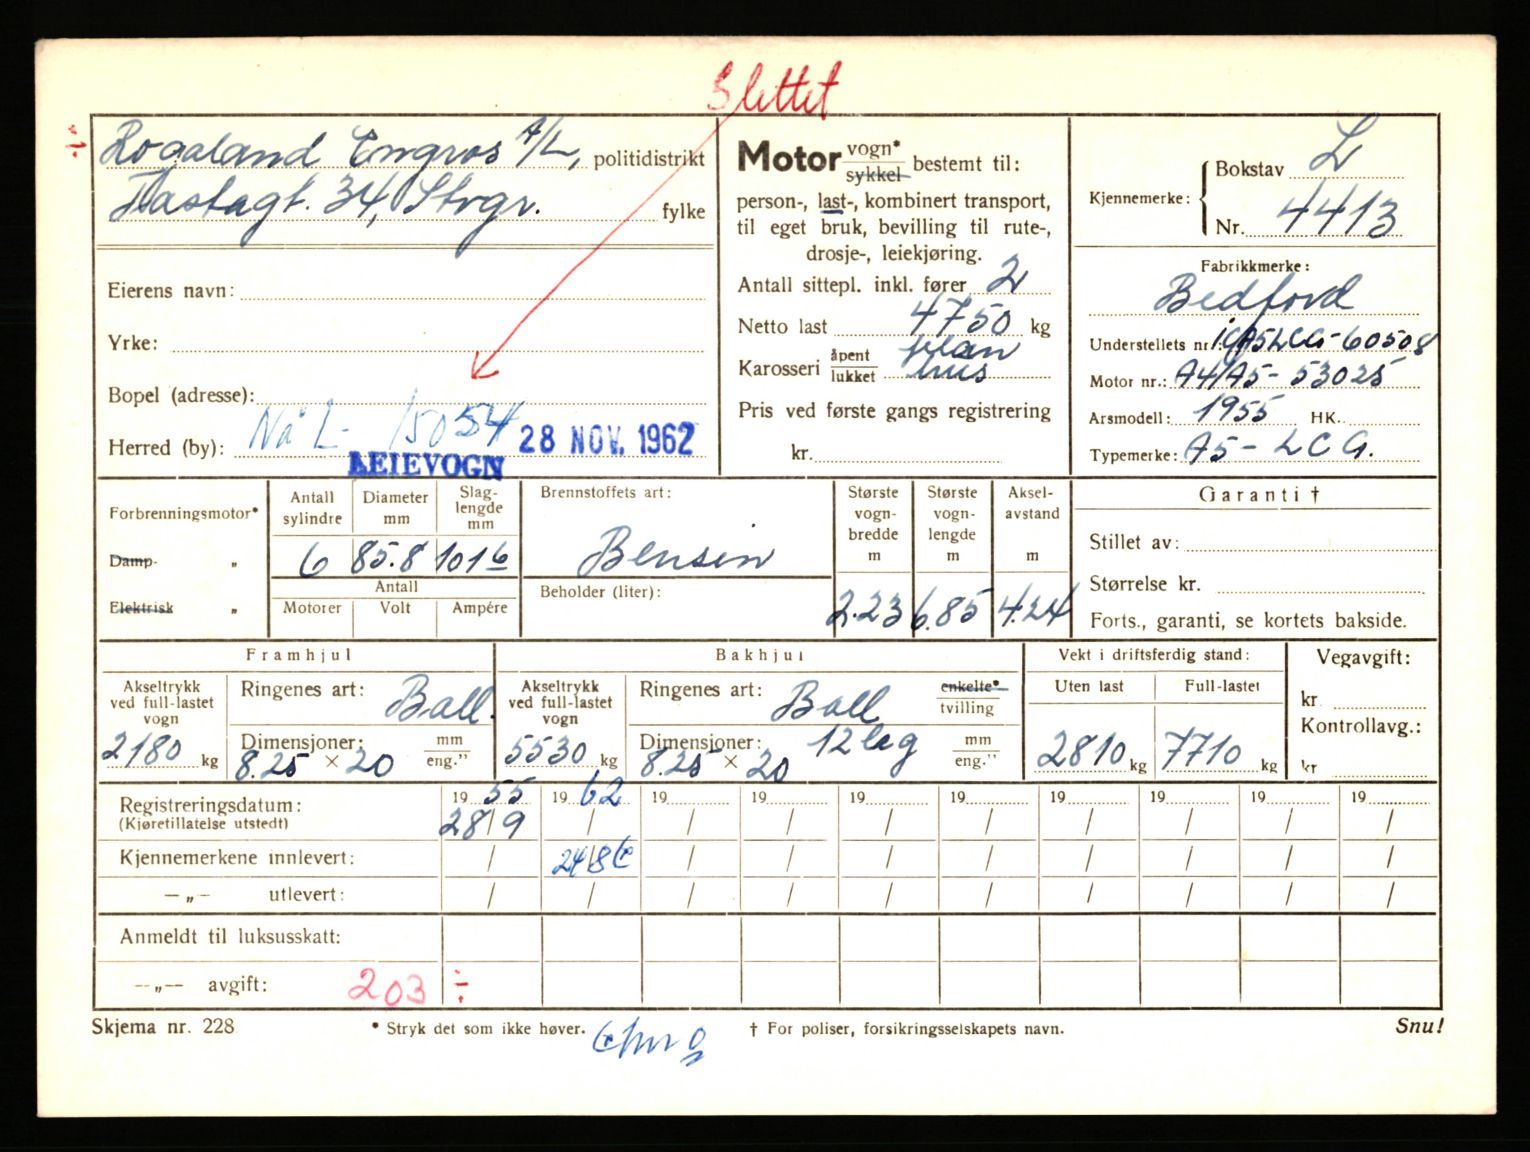 Slettet
Rogaland Engros A/L, politidistrikt
Tastagt. 34, Stvgr. fylke
Eierens navn:
Yrke:
Bopel (adresse):
Nå L- 15054
Herred (by): 28 NOV. 1962
LEIEVOGN
Motor vogn* sykkel bestemt til:
person-, last-, kombinert transport,
til eget bruk, bevilling til rute-,
drosje-, leiekjøring.
Antall sittepl. inkl. fører 2
Netto last 4750 kg
Karosseri åpent plan
lukket hus
Pris ved første gangs registrering
kr.
Kjennemerke: Bokstav L
Nr. 4413
Fabrikkmerke:
Bedford
Understellets nr.: A5LCG-60508
Motor nr.: A4/A5-53025
Arsmodell: 1955 HK.
Typemerke: A5-LCG.
Forbrenningsmotor*
Damp- „
Elektrisk „
Antall sylindre Diameter mm Slag-lengde mm
6 85.8 101 6
Antall
Motorer Volt Ampére
Brennstoffets art:
Bensin
Beholder (liter):
Største vogn-bredde m Største vogn-lengde m Aksel-avstand m
2.23 6.85 4.24
Garanti †
Stillet av:
Størrelse kr.
Forts., garanti, se kortets bakside.
Framhjul
Akseltrykk ved full-lastet vogn
2180 kg
Ringenes art: Ball.
Dimensjoner: mm
8.25 × 20 eng."
Bakhjul
Akseltrykk ved full-lastet vogn
5530 kg
Ringenes art: Ball enkelte* tvilling
Dimensjoner: 12 lag mm
8.25 × 20 eng."
Vekt i driftsferdig stand:
Uten last Full-lastet
2810 kg 7710 kg
Vegavgift:
kr
Kontrollavg.:
kr
Registreringsdatum: 19 55 19 62 19 19 19 19 19 19 19 19
(Kjøretillatelse utstedt) 28/9 / / / / / / / / /
Kjennemerkene innlevert: / 24/8 / / / / / / / /
—„— utlevert: / / / / / / / / / /
Anmeldt til luksusskatt:
—„— avgift: 203 ÷
Skjema nr. 228 * Stryk det som ikke høver. † For poliser, forsikringsselskapets navn. Snu!